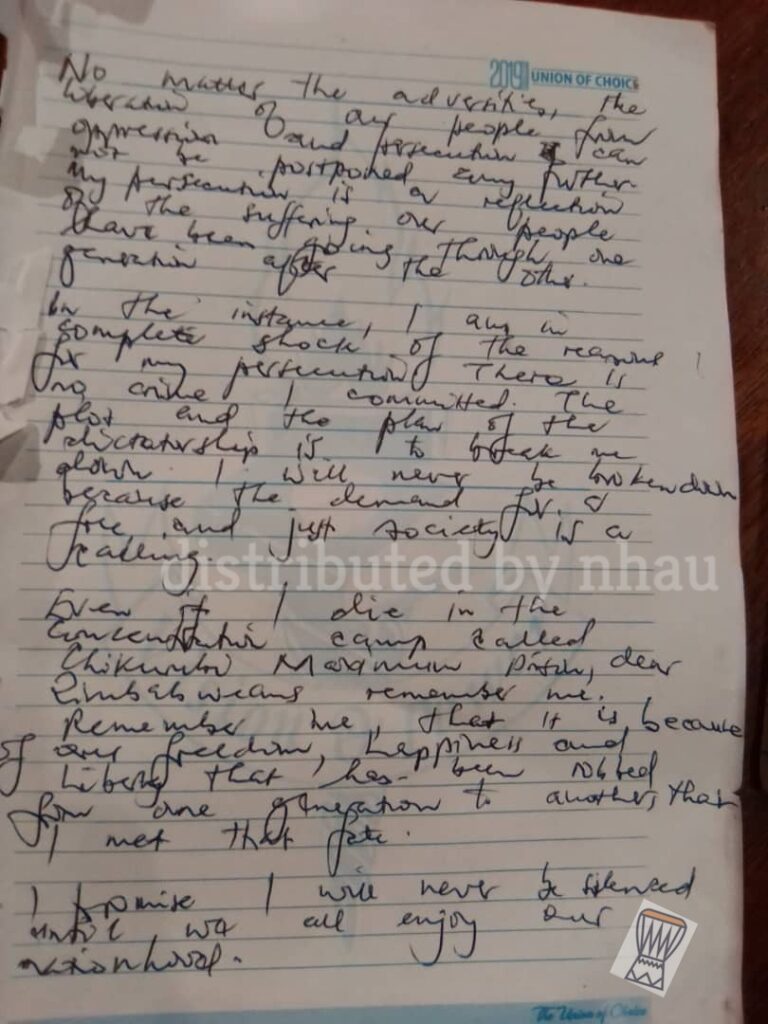 2019 UNION OF CHOICE
No matter the adversities, the
liberation of our people from
oppression and persecution can
not be postponed any further.
My persecution is a reflection
of the suffering our people
have been going through one
generation after the other.
In the instance, I am in
complete shock of the reasons
for my persecution. There is
no crime I committed. The
plot and the plan of the
dictatorship is to break me
down I will never be broken down
because the demand for a
free and just society is a
calling.
distributed by nhau
Even if I die in the
Concentration camp called
Chikurubi Maximum Prison, dear
Zimbabweans remember me.
Remember me, that it is because
of our freedom, happiness and
Liberty that has been robbed
from one generation to another, that
I met that fate.
I promise I will never be silenced
until we all enjoy our
nationhood.
The Union of Choice